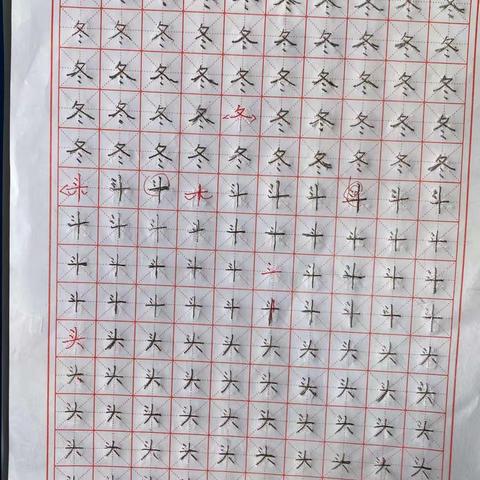 冬冬冬冬冬冬冬冬冬冬
冬冬冬冬冬冬冬冬冬冬
冬冬冬冬冬冬冬冬冬冬
冬冬冬冬冬冬冬冬冬冬
冬冬冬冬冬冬冬冬冬冬
斗斗斗斗斗斗斗斗斗斗
斗斗斗斗斗斗斗斗斗斗
斗斗斗斗斗斗斗斗斗斗
斗斗斗斗斗斗斗斗斗斗
头头头头头头头头头头
头头头头头头头头头头
头头头头头头头头头头
头头头头头头头头头头